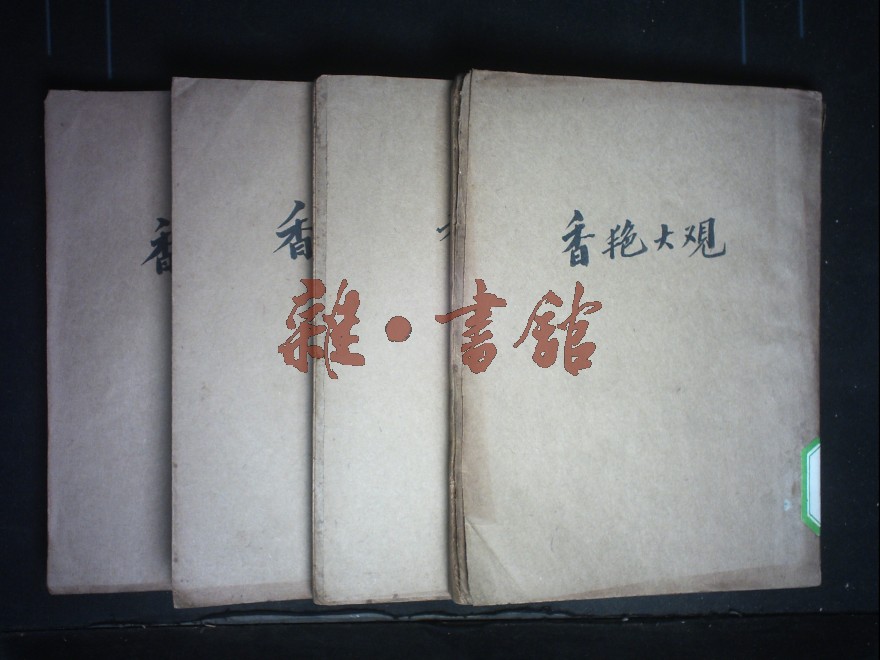 香
香
香艳大观
雜·書舘